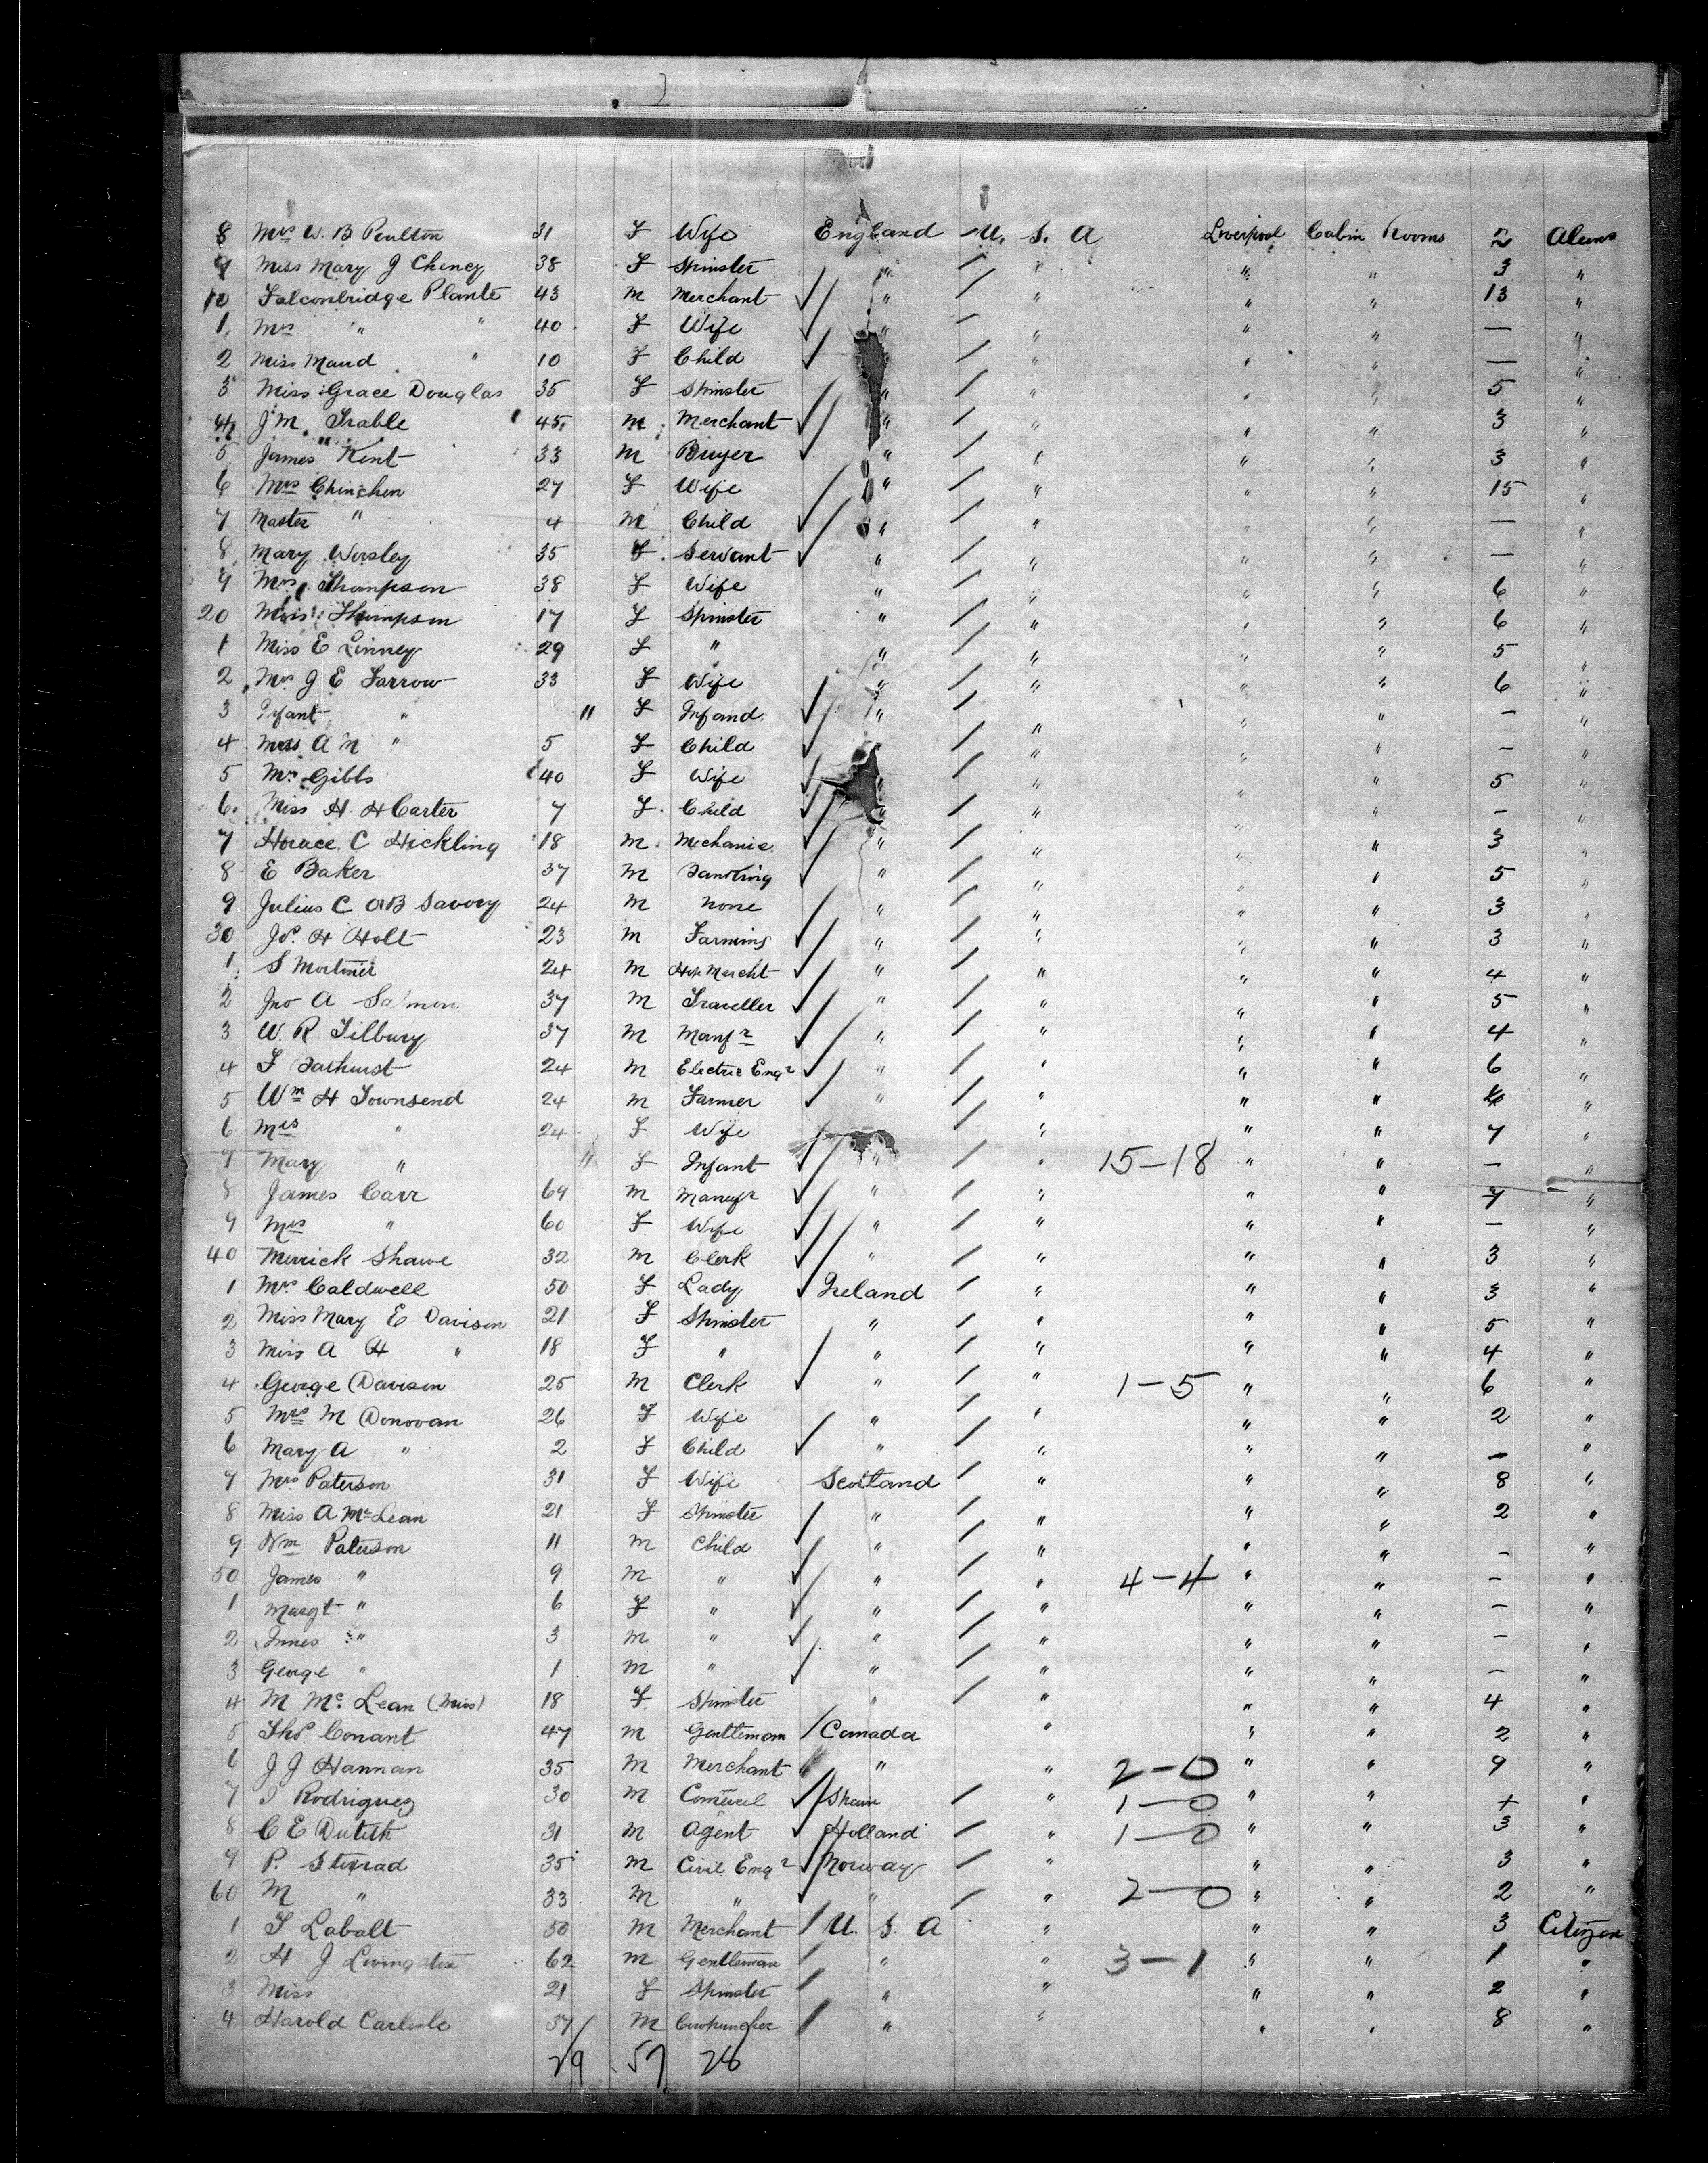 8 Mrs W. B Poulton 31 F Wife England U. S. A Liverpool Cabin Rooms 2 Aliens
9 Miss Mary J Cheney 38 F Spinster " / " " " 3 "
10 Falconbridge Plante 43 m Merchant ✓ " / " " " 13 "
1 Mrs " " 40 F Wife ✓ " / " " " — "
2 Miss Maud " 10 F Child ✓ / " " " — "
3 Miss Grace Douglas 35 F Spinster " / " " " 5 "
4 J M. Trable 45 m Merchant ✓ " / " " " 3 "
5 James Kent 33 M Buyer ✓ " / " " " 3 "
6 Mrs Chinchen 27 F Wife " / " " " 15 "
7 Master " 4 M Child ✓ " / " " " — "
8 Mary Worsley 35 F Servant ✓ " / " " " — "
9 Mrs Thompson 38 F Wife " / " " " 6 "
20 Miss Thompson 17 F Spinster " / " " " 6 "
1 Miss E Linney 29 F " " / " " " 5 "
2 Mrs J E Farrow 33 F Wife " / " " " 6 "
3 Infant " 11 F Infand ✓ " / " " " - "
4 Miss A M " 5 F Child ✓ / " " " - "
5 Mrs Gibbs 40 F Wife ✓ " / " " " 5 "
6 Miss H. H Carter 7 F Child ✓ " / " " " - "
7 Horace C Hickling 18 M Mechanic ✓ " / " " " 3 "
8 E Baker 37 M ✓ " / " " " 5 "
9 Julius C Savory 24 M None " / " " " 3 "
30 Js. H Holt 23 M Farming ✓ " / " " " 3 "
1 S Mortimer 24 M Hop Mercht ✓ " / " " " 4 "
2 Jno A Salmon 37 M Traveller ✓ " / " " " 5 "
3 W. R Tilbury 37 M Manfr ✓ " / " " " 4 "
4 F Bathurst 24 M Electric Engr ✓ " / " " " 6 "
5 Wm H Townsend 24 M Farmer ✓ " / " " "
6 Mrs " 24 F Wife / " " " 7 "
7 Mary " 11 F Infant ✓ " / " 15-18 " " - "
8 James Carr 64 M ✓ " / " " " 7 "
9 Mrs " 60 F Wife ✓ " / " " " - "
40 Merrick Shawe 32 M Clerk ✓ " / " " " 3 "
1 Mrs Caldwell 50 F Lady ✓ Ireland / " " " 3 "
2 Miss Mary E Davison 21 F Spinster " / " " " 5 "
3 Miss A H " 18 F " " / " " " 4 "
4 George Davison 25 M Clerk ✓ " / " 1-5 " " 6 "
5 Mrs M Donovan 26 F Wife " / " " " 2 "
6 Mary A " 2 F Child ✓ " / " " " - "
7 Mrs Paterson 31 F Wife Scotland / " " " 8 "
8 Miss A McLean 21 F Spinster " / " " " 2 "
9 Wm Paterson 11 M Child ✓ " / " " " - "
50 James " 9 M " ✓ " / " 4-4 " " - "
1 Margt " 6 F " ✓ " / " " " - "
2 Innes " 3 M " ✓ " / " " " - "
3 George " 1 M " ✓ " / " " " - "
4 M Mc Lean (Miss) 18 F Spinster " / " " " 4 "
5 Thos. Conant 47 M Gentleman / Canada " " " 2 "
6 J J Hannan 35 M Merchant " " 2-0 " " 9 "
7 Rodriguez 30 M ✓ Spain / " 1-0 " " "
8 C E 31 M Agent ✓ Holland / " 1-0 " " 3 "
9 P. 35 M Civil Engr ✓ Norway / " " " 3 "
60 M " 33 M " ✓ " / " 2-0 " " 2 "
1 Labatt 50 M Merchant / U. S. A " " " 3 Citizen
2 H J Livingston 62 M Gentleman / " " 3-1 " " 1 "
3 Miss 21 F Spinster / " " " " 2 "
4 Harold Carlisle 37 M Cowpuncher / " " " " 8 "
29 57 28